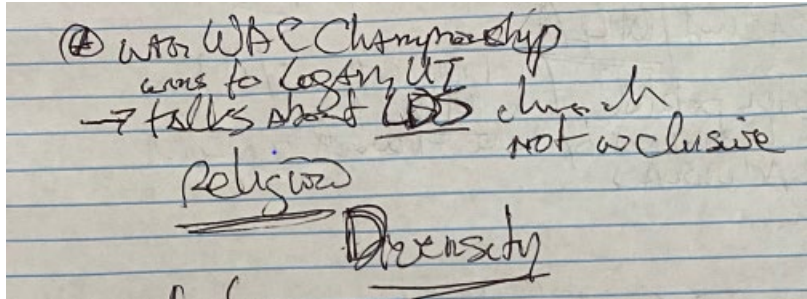 Ⓐ WAC Championship
to Logan, UT
→ talks about LDS church
Not inclusive
Religion
Diversity